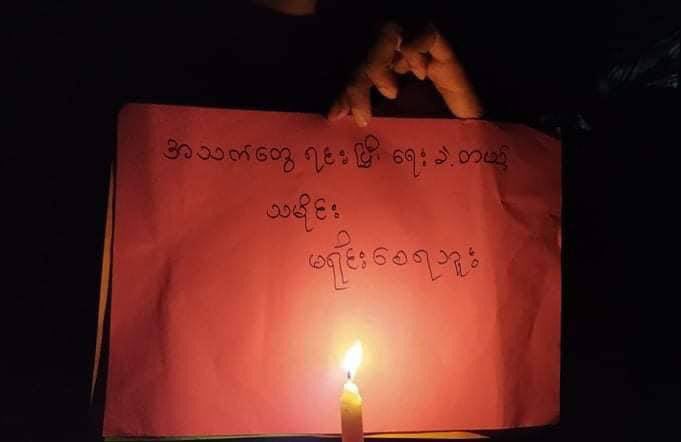 အသက်တွေ ရင်းပြီး ရေးခဲ့တယ်
သမိုင်း
မရိုင်းစေရဘူး